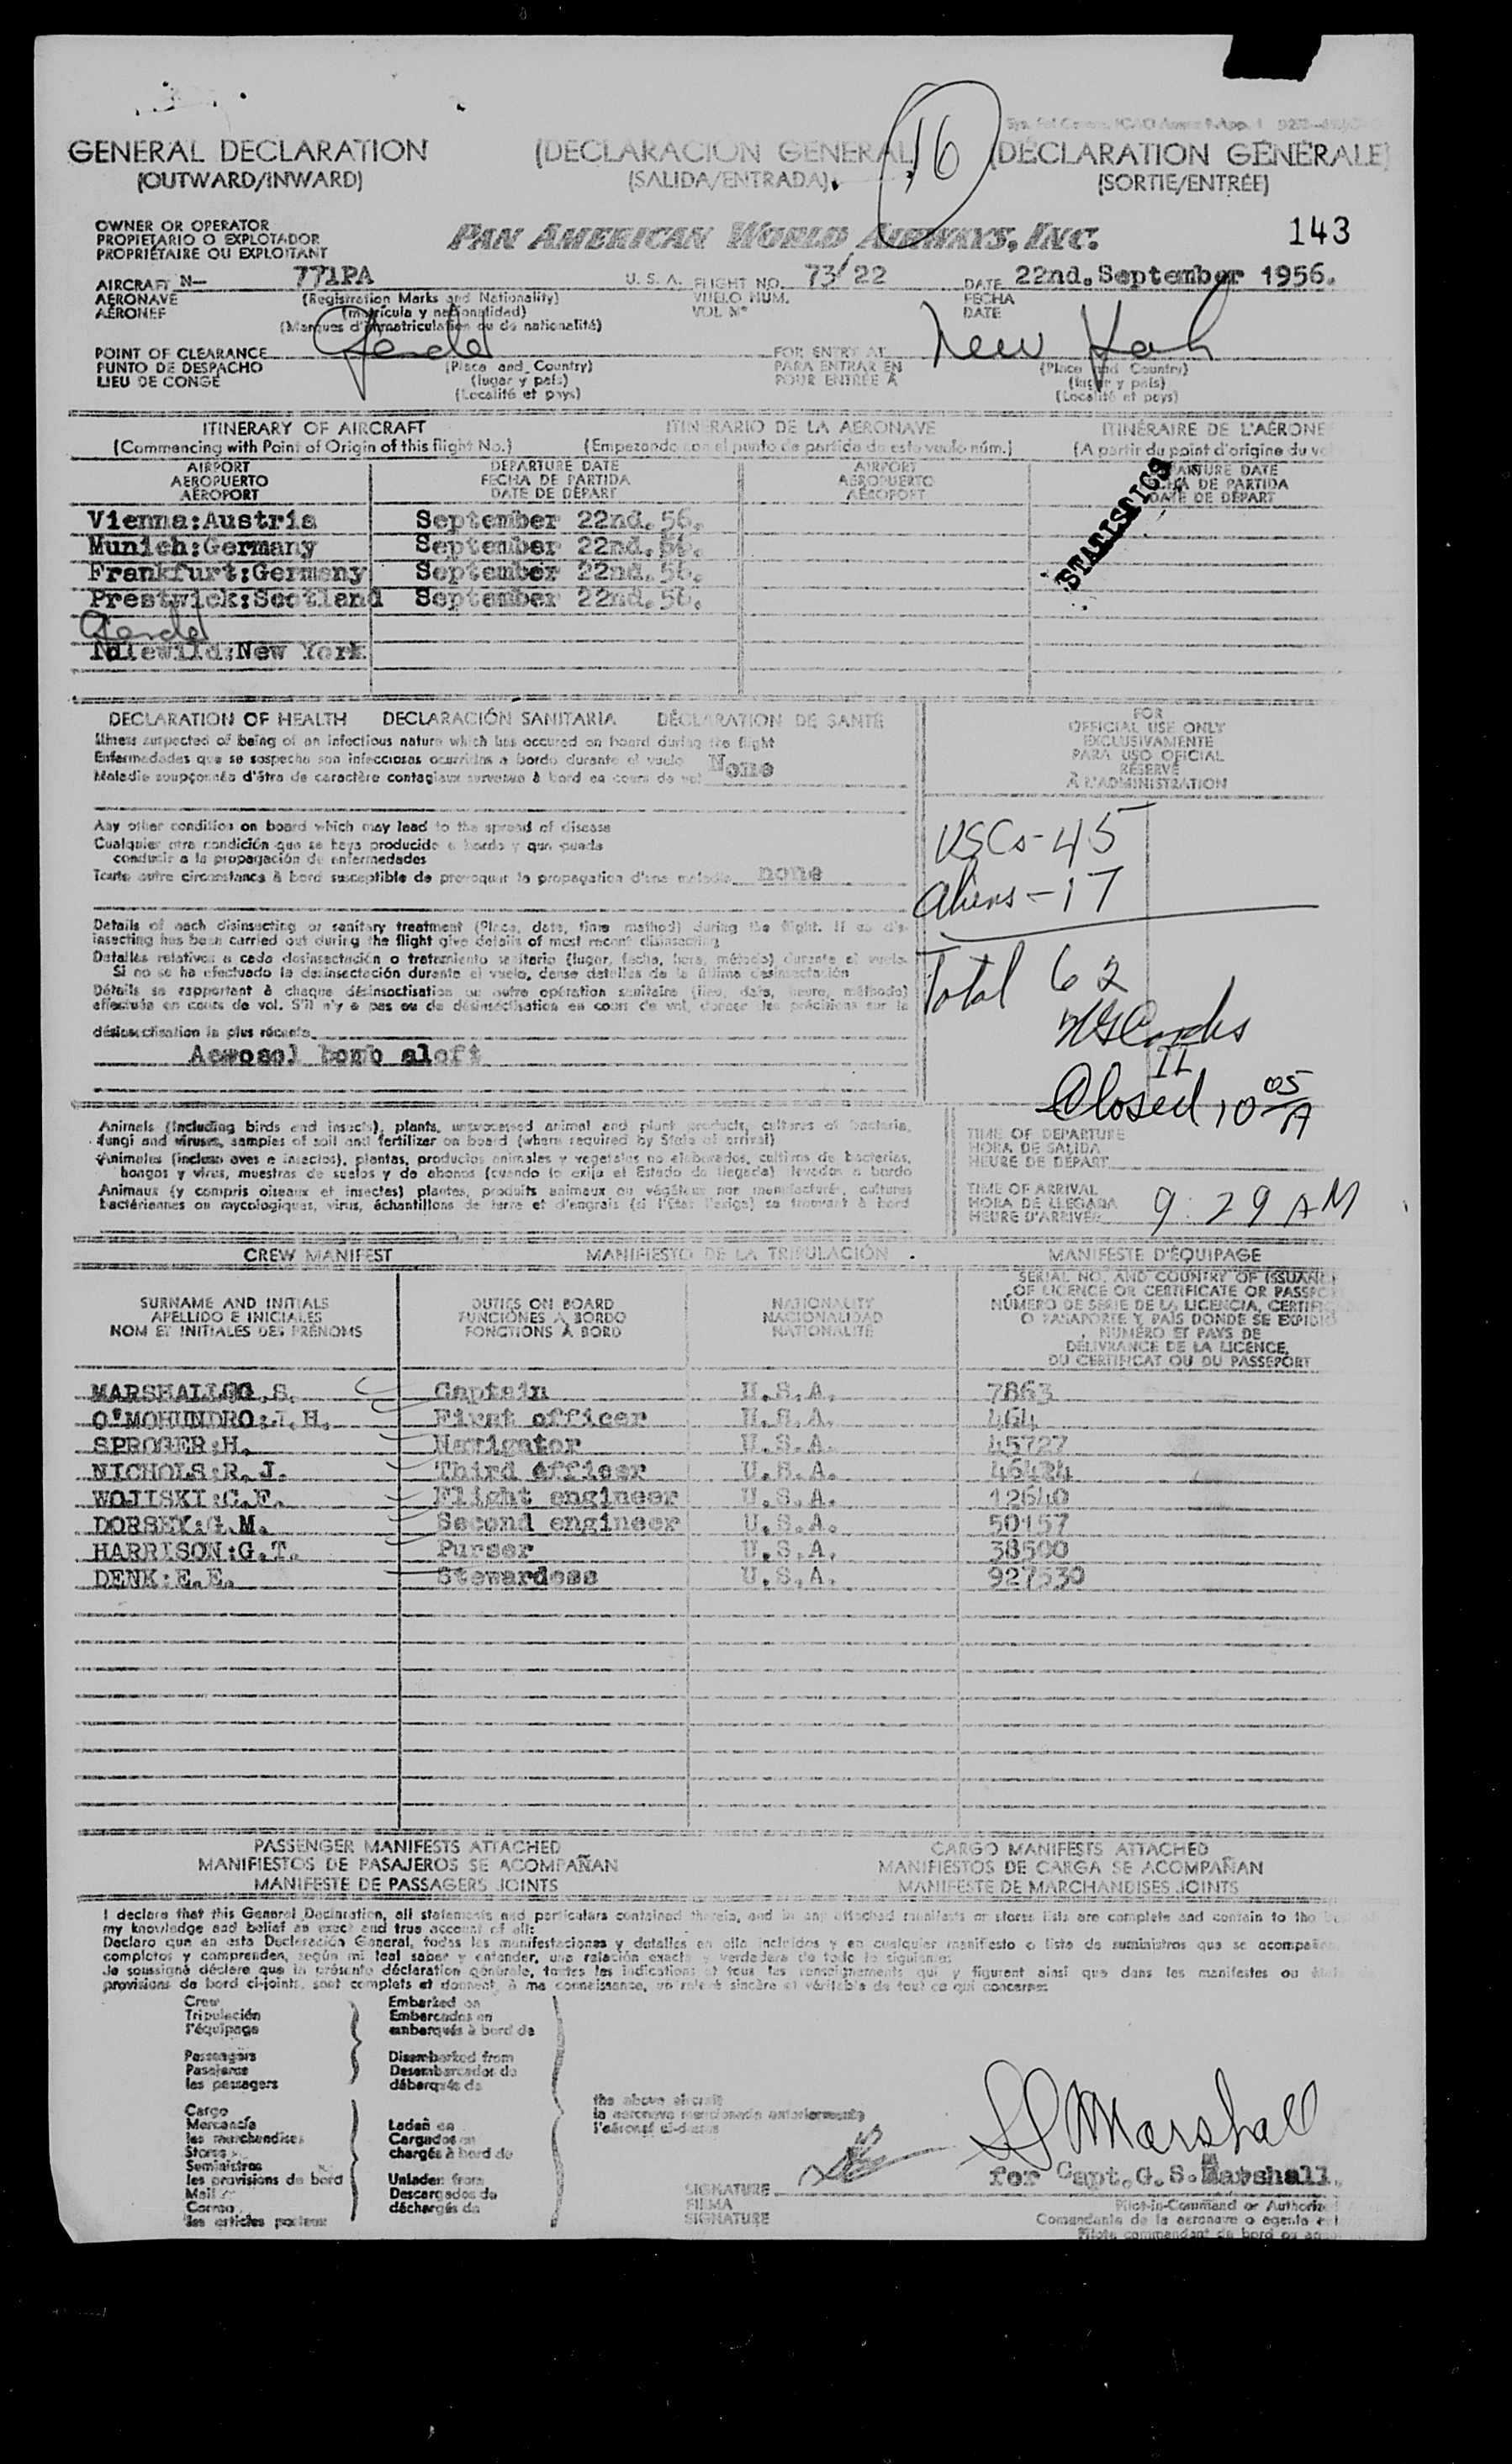 GENERAL DECLARATION (DECLARACIÓN GENERAL) (DÉCLARATION GÉNÉRALE)
(OUTWARD/INWARD) (SALIDA/ENTRADA) (SORTIE/ENTRÉE)
16
OWNER OR OPERATOR
PROPIETARIO O EXPLOTADOR
PROPRIÉTAIRE OU EXPLOITANT
PAN AMERICAN WORLD AIRWAYS, INC.
143
AIRCRAFT N- 771PA U. S. A. FLIGHT NO. 73/22 DATE 22nd. September 1956.
AERONAVE (Registration Marks and Nationality) VUELO NUM. FECHA
AÉRONEF (matrícula y nacionalidad) VOL Nº DATE
(Marques d'immatriculation ou de nationalité)
POINT OF CLEARANCE FOR ENTRY AT New York
PUNTO DE DESPACHO (Place and Country) PARA ENTRAR EN (Place and Country)
LIEU DE CONGÉ (lugar y país) POUR ENTRÉE À (lugar y país)
(Localité et pays) (Localité et pays)
ITINERARY OF AIRCRAFT ITINERARIO DE LA AERONAVE ITINÉRAIRE DE L'AÉRONE
(Commencing with Point of Origin of this flight No.) (Empezando con el punto de partida de este vuelo núm.) (A partir du point d'origine du vo
AIRPORT DEPARTURE DATE AIRPORT DEPARTURE DATE
AEROPUERTO FECHA DE PARTIDA AEROPUERTO FECHA DE PARTIDA
AÉROPORT DATE DE DÉPART AÉROPORT DATE DE DÉPART
STATISTICS
Vienna:Austria September 22nd.56.
Munich:Germany September 22nd.56.
Frankfurt:Germany September 22nd.56.
Prestwick:Scotland September 22nd.56.
Idlewild:New York
DECLARATION OF HEALTH DECLARACIÓN SANITARIA DÉCLARATION DE SANTÉ
Illness suspected of being of an infectious nature which has occured on board during the flight
Enfermedades que se sospecha son infecciosas ocurridas a bordo durante el vuelo None
Maladie soupçonnée d'être de caractère contagieux survenue à bord en cours de vol
FOR
OFFICIAL USE ONLY
EXCLUSIVAMENTE
PARA USO OFICIAL
RÉSERVÉ
À L'ADMINISTRATION
Any other condition on board which may lead to the spread of disease
Cualquier otra condición que se haya producido a bordo y que pueda
conducir a la propagación de enfermedades
Toute autre circonstance à bord susceptible de provoquer la propagation d'une maladie none
USCs-45
Aliens-17
Total 62
Closed 10 05/A
Details of each disinsecting or sanitary treatment (Place, date, time method) during the flight. If no dis-
insecting has been carried out during the flight give details of most recent disinsecting
Detalles relativos a cada desinsectación o tratamiento sanitario (lugar, fecha, hora, método) durante el vuelo.
Si no se ha efectuado la desinsectación durante el vuelo, dense detalles de la última desinsectación
Détails se rapportant à chaque désinsectisation ou autre opération sanitaire (lieu, date, heure, méthode)
effectuée en cours de vol. S'il n'y a pas eu de désinsectisation en cours de vol, donner les précisions sur la
désinsectisation la plus récente
Aerosol bomb aloft
Animals (including birds and insects), plants, unprocessed animal and plant products, cultures of bacteria,
fungi and viruses, samples of soil and fertilizer on board (where required by State of arrival)
Animales (incluso aves e insectos), plantas, productos animales y vegetales no elaborados, cultivos de bacterias,
hongos y virus, muestras de suelos y de abonos (cuando lo exija el Estado de llegada) llevados a bordo
Animaux (y compris oiseaux et insectes) plantes, produits animaux ou végétaux non manufacturé, cultures
bactériennes ou mycologiques, virus, échantillons de terre et d'engrais (si l'État l'exige) se trouvant à bord
TIME OF DEPARTURE
HORA DE SALIDA
HEURE DE DÉPART
TIME OF ARRIVAL
HORA DE LLEGADA
HEURE D'ARRIVÉE 9:29 AM
CREW MANIFEST MANIFIESTO DE LA TRIPULACIÓN MANIFESTE D'ÉQUIPAGE
SURNAME AND INITIALS
APELLIDO E INICIALES
NOM ET INITIALES DES PRÉNOMS
DUTIES ON BOARD
FUNCIONES A BORDO
FONCTIONS À BORD
NATIONALITY
NACIONALIDAD
NATIONALITÉ
SERIAL NO. AND COUNTRY OF ISSUANC
OF LICENCE OR CERTIFICATE OR PASSPO
NÚMERO DE SERIE DE LA LICENCIA, CERTIFIC
O PASAPORTE Y PAÍS DONDE SE EXPIDIÓ
NUMÉRO ET PAYS DE
DÉLIVRANCE DE LA LICENCE,
DU CERTIFICAT OU DU PASSEPORT
MARSHALL G.S. Captain U.S.A. 7863
O'MOHUNDRO:J.H. First officer U.S.A. 464
SPROGER:H. Navigator U.S.A. 45727
NICHOLS:R.J. Third officer U.S.A. 46424
WOJISKI:C.F. Flight engineer U.S.A. 12640
DORSEY:G.M. Second engineer U.S.A. 50157
HARRISON:G.T. Purser U.S.A. 38500
DENK:E.E. Stewardess U.S.A. 927530
PASSENGER MANIFESTS ATTACHED CARGO MANIFESTS ATTACHED
MANIFIESTOS DE PASAJEROS SE ACOMPAÑAN MANIFIESTOS DE CARGA SE ACOMPAÑAN
MANIFESTE DE PASSAGERS JOINTS MANIFESTE DE MARCHANDISES JOINTS
I declare that this General Declaration, all statements and particulars contained therein, and in any attached manifests or stores lists are complete and contain to the
my knowledge and belief an exact and true account of all:
Declaro que en esta Declaración General, todas las manifestaciones y detalles en ella incluidos y en cualquier manifiesto o lista de suministros que se acompañe
completos y comprenden, según mi leal saber y entender, una relación exacta y verdadera de todo lo siguiente:
Je soussigné déclare que la présente déclaration générale, toutes les indications et tous les renseignements qui y figurent ainsi que dans les manifestes ou
provisions de bord ci-joints, sont complets et donnent, à ma connaissance, un relevé sincère et véritable de tout ce qui concerne:
Crew Embarked on
Tripulación Embarcados en
l'équipage embarqués à bord de
Passengers Disembarked from
Pasajeros Desembarcados de
les passagers débarqués de
Cargo
Mercancía Laden on
les marchandises Cargados en
Stores chargés à bord de
Suministros
les provisions de bord Unladen from
Mail Descargados de
Correo déchargés de
les articles postaux
the above aircraft
la aeronave mencionada anteriormente
l'aéronef ci-dessus
SIGNATURE
FIRMA
SIGNATURE
Marshall
for Capt. G. S. Marshall.
Pilot-in-Command or Authorize
Comandante de la aeronave o agente
Pilote commandant de bord ou